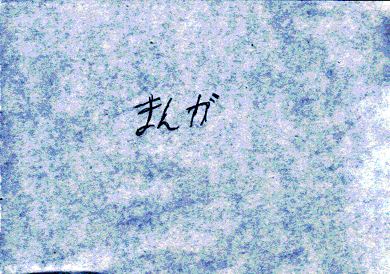 まんが